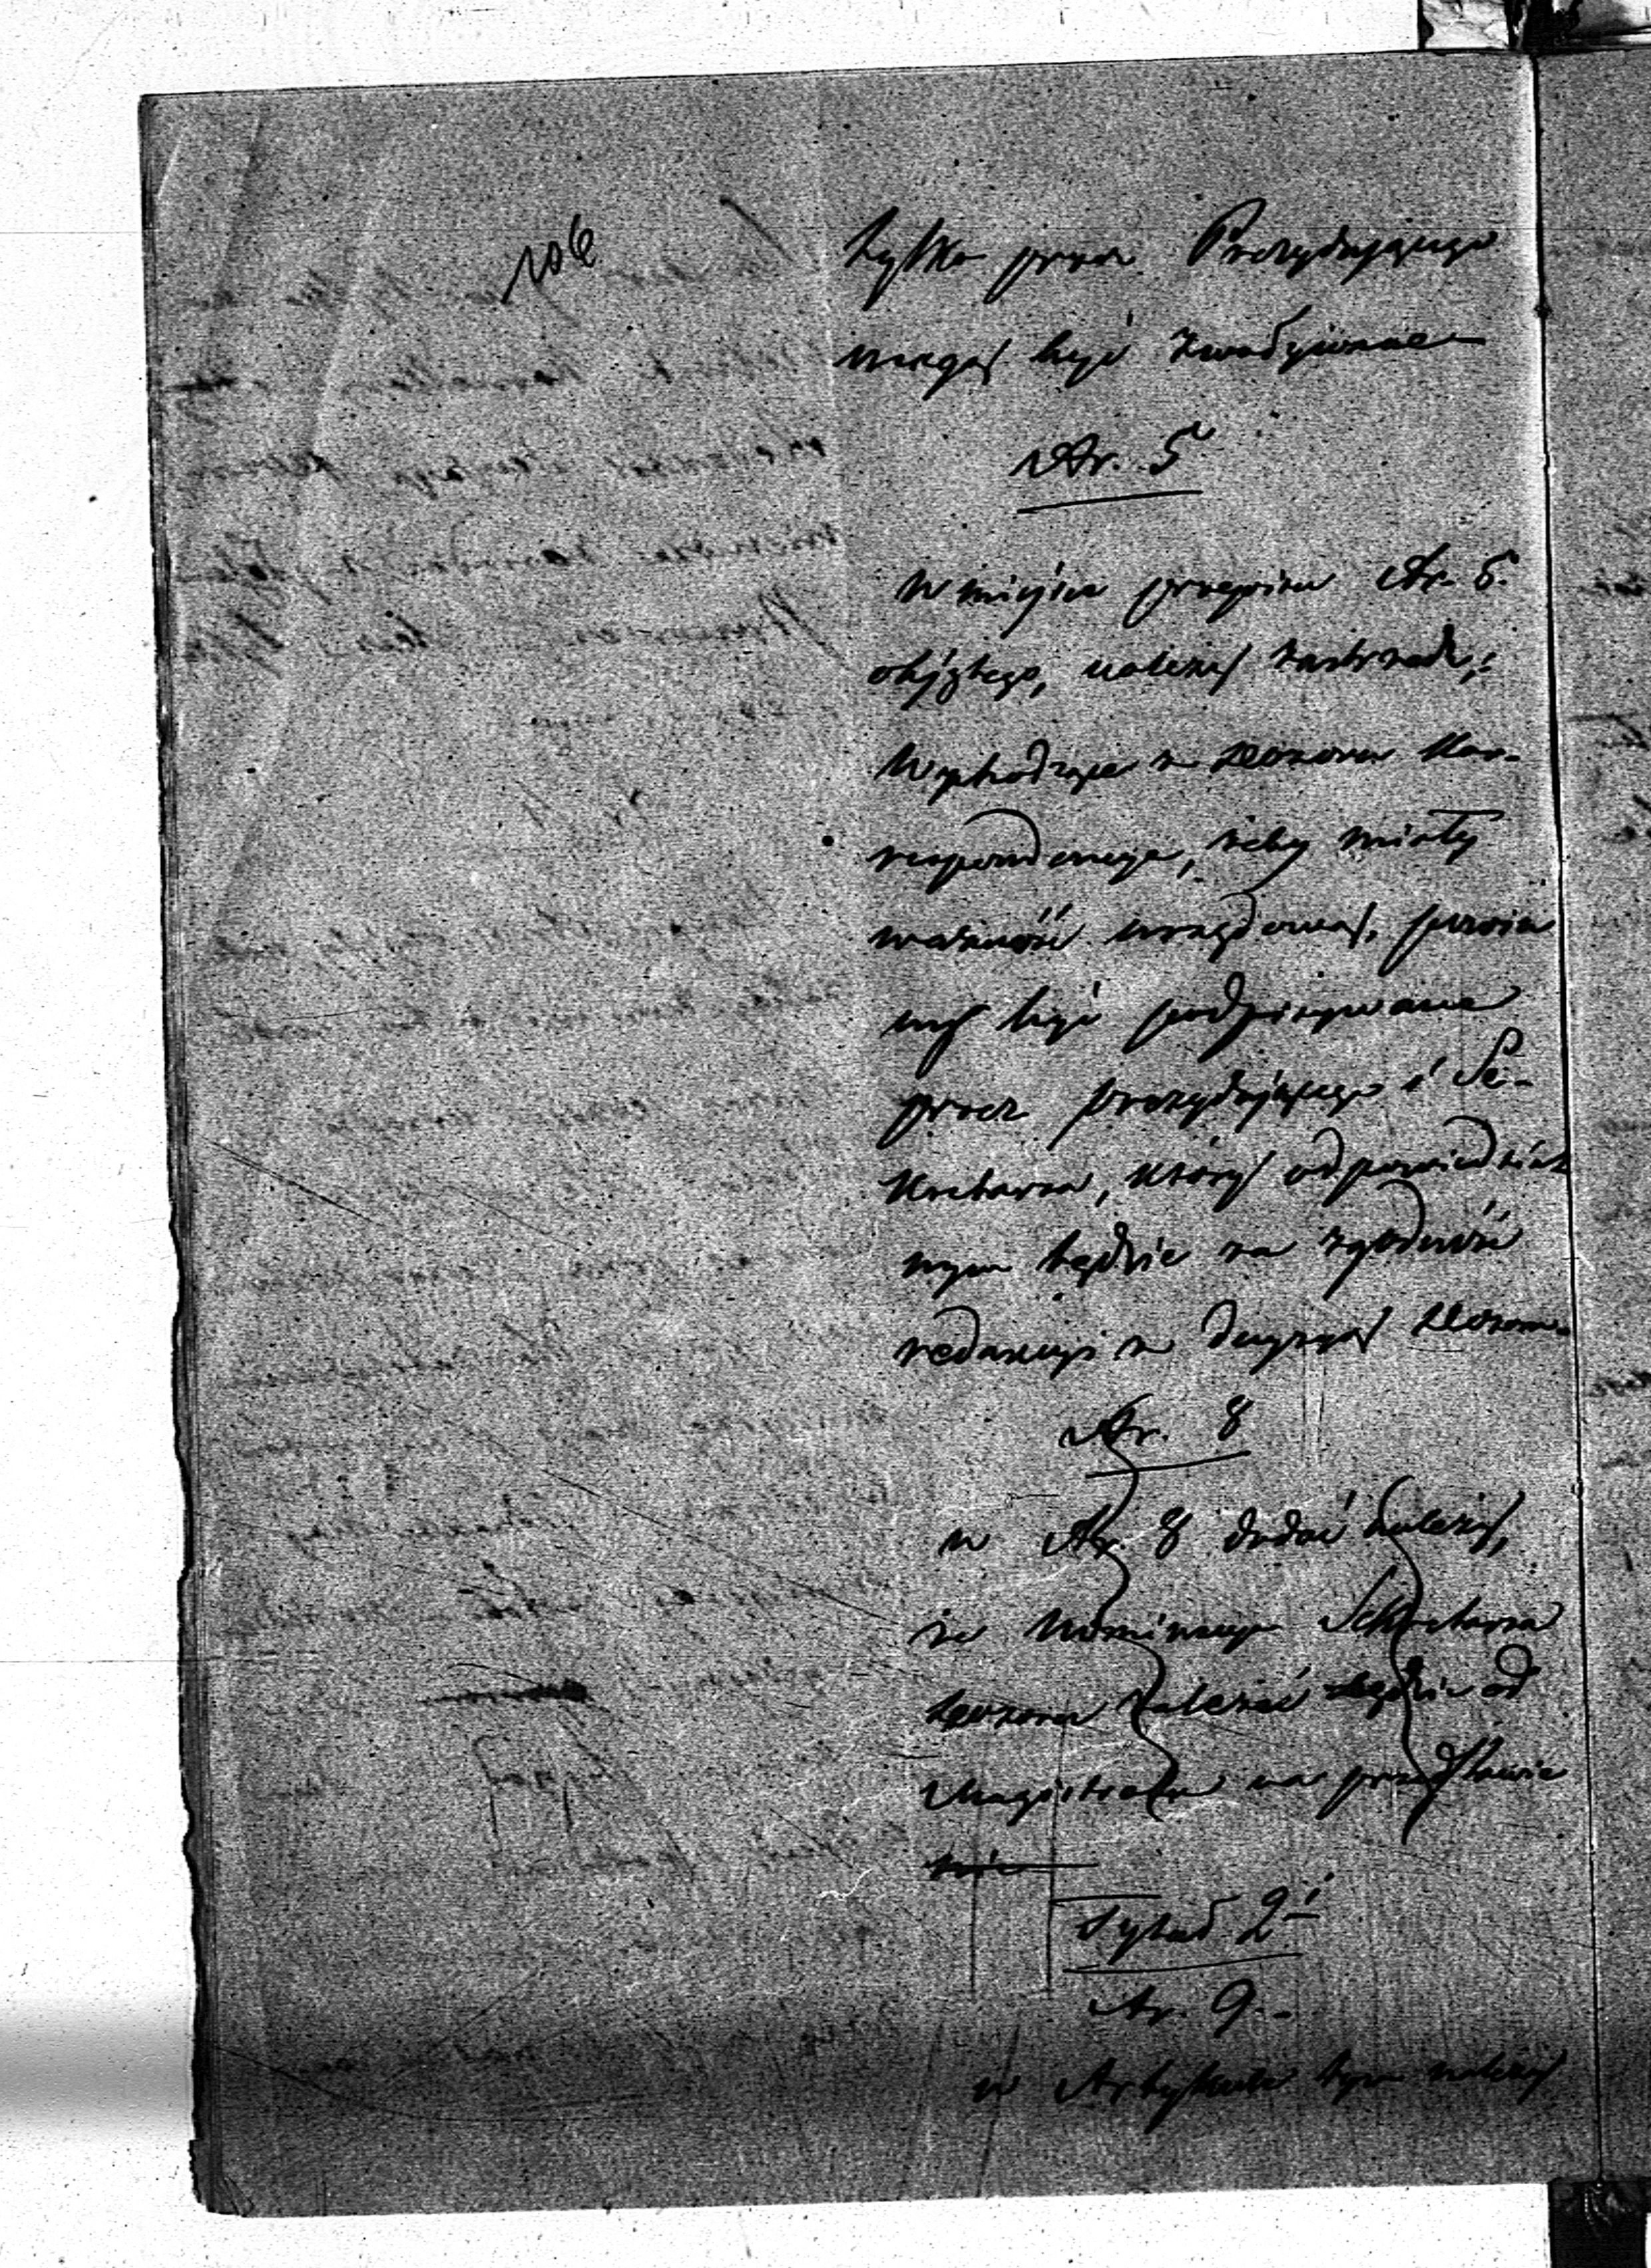 106
tylko przez Prezydującego
mogą być zwoływane
Ar. 5
W miejsce przepisu Ar. 5.
objętego, należy zastrzedz:
Wychodząca z Dozoru Kor-
respondencya, żeby miały
ważność urzędową, powin
ny być podpisywane
przez prezydującego i Se-
kretarza, który odpowiedzial
nym będzie za zgodność
redakcyi z decyzyą Dozoru.
Ar. 8
w Ar. 8 dodać należy,
że Nominacya Sekretarza
Dozoru zależeć będzie od
Magistratu na przedstawie
nie
Tytuł 2i
Ar. 9.-
w Artykule tym należy